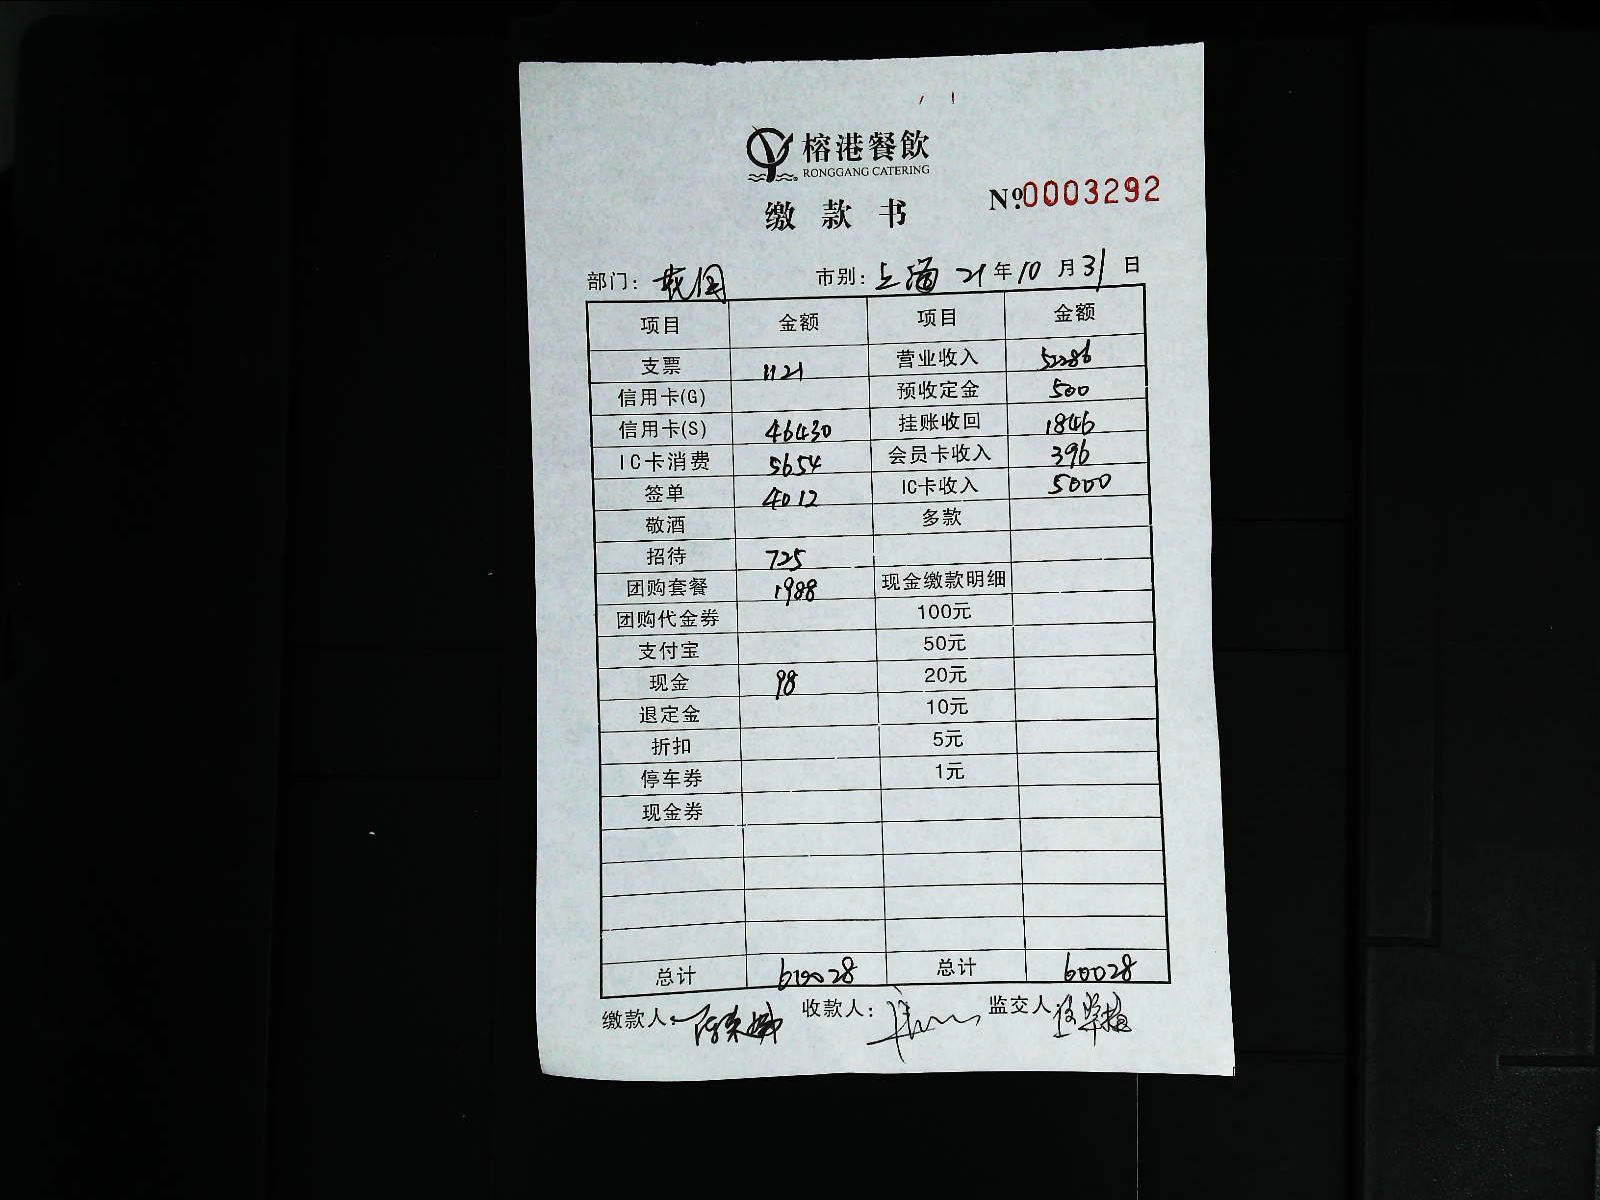 榕港餐飲
RONGGANG CATERING
缴款书
№0003292
部门: 市别:上海 21年10月31日
项目 金额 项目 金额
支票 1121 营业收入 52286
信用卡(G) 预收定金 500
信用卡(S) 46430 挂账收回 1846
IC卡消费 5654 会员卡收入 396
签单 4012 IC卡收入 5000
敬酒 多款
招待 725
团购套餐 1988 现金缴款明细
团购代金券 100元
支付宝 50元
现金 98 20元
退定金 10元
折扣 5元
停车券 1元
现金券
总计 60028 总计 60028
缴款人: 收款人: 监交人: